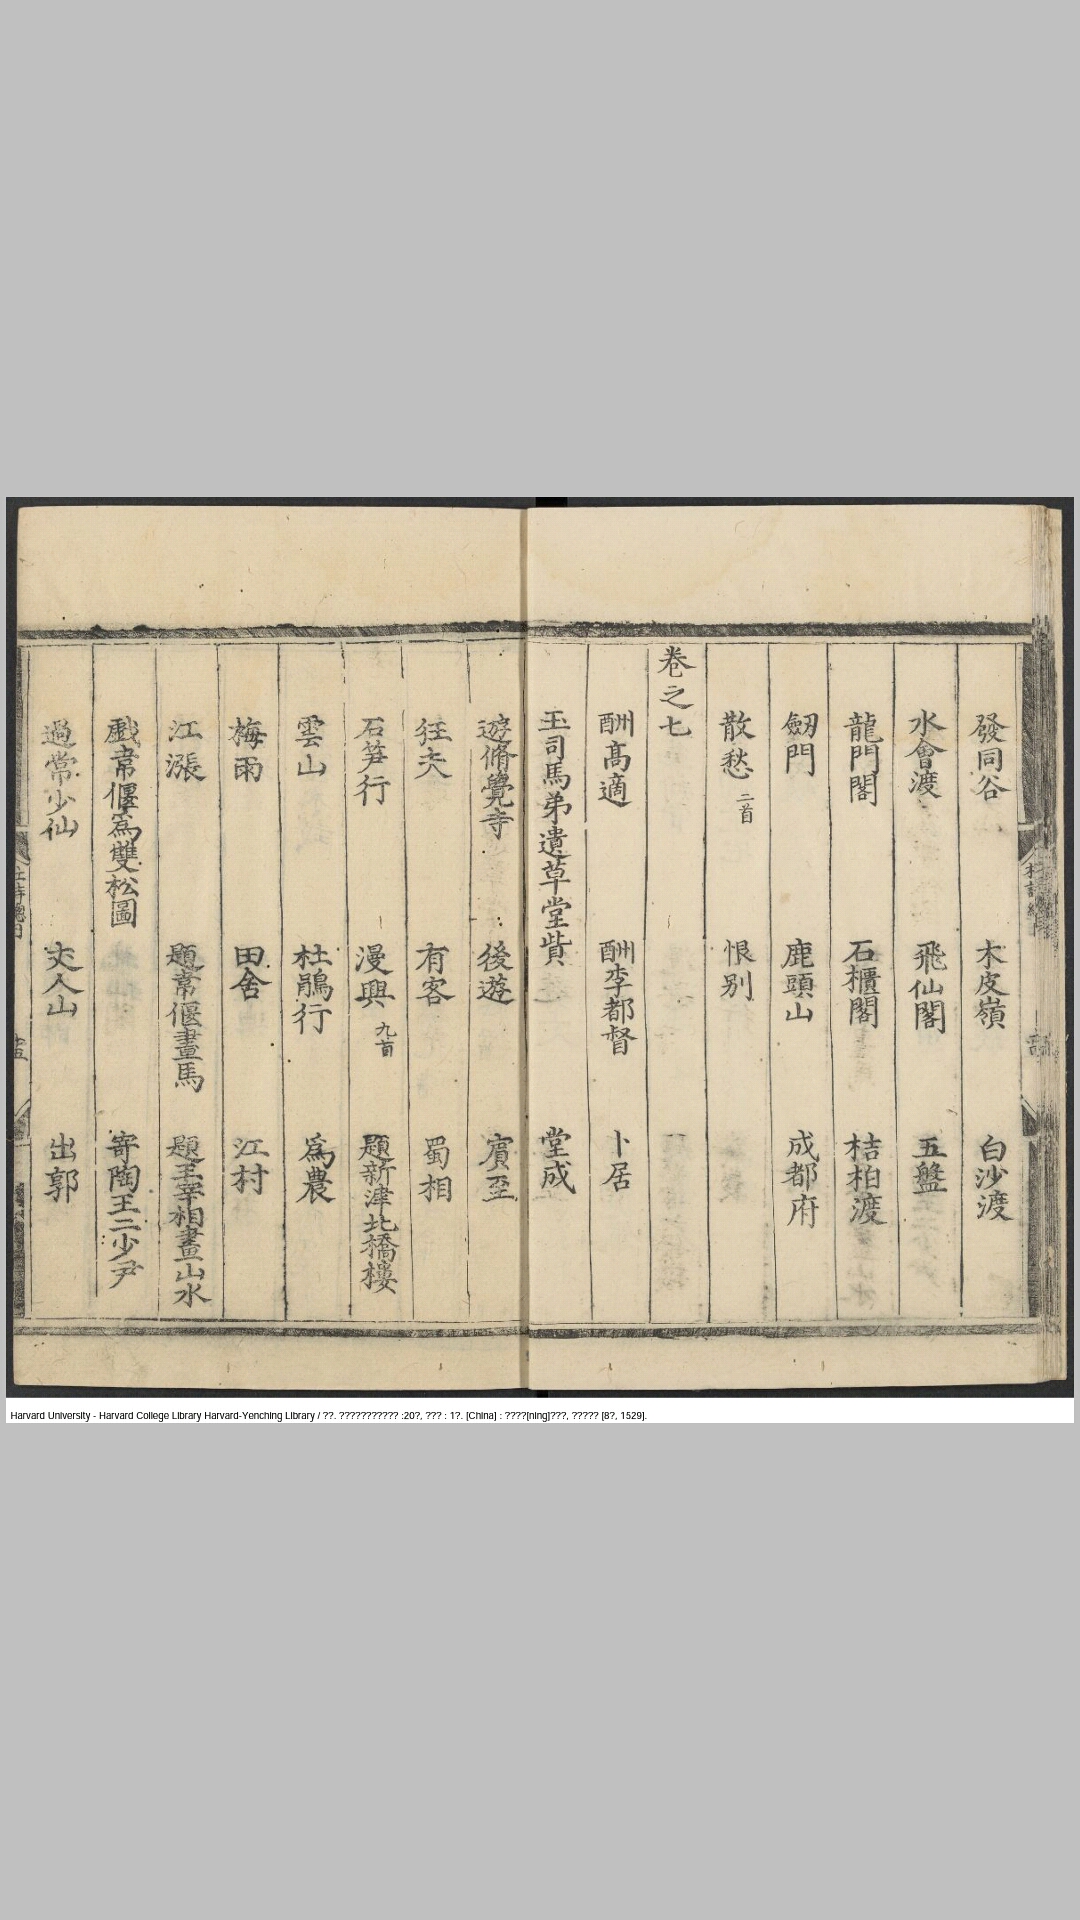 發同谷 木皮嶺 白沙渡
水會渡 飛仙閣 五盤
龍門閣 石櫃閣 桔柏渡
劒門 鹿頭山 成都府
散愁二首 恨别
卷之七
酬髙適 酬李都督 卜居
王司馬弟遺草堂貲 堂成
遊脩覺寺 後遊 賔至
狂夫 有客 蜀相
石笋行 漫興九首 題新津北橋樓
雲山 杜鵑行 爲農
梅雨 田舍 江村
江漲 題韋偃畫馬 題王宰相畫山水
戯韋偃爲雙松圖 寄陶王二少尹
過常少仙 丈人山 出郭
Harvard University - Harvard College Library Harvard-Yenching Library / ??. ??????????? :20?, ??? : 1?. [China] : ????[ning]???, ????? [8?, 1529].